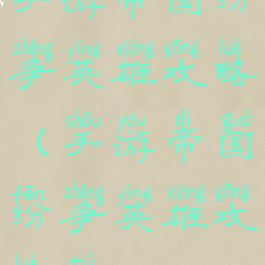 手游帝国纷
zhēng yīng xióng gōng lüè
争英雄攻略
shǒu yóu dì guó
(手游帝国
fēn zhēng yīng xióng gōng
纷争英雄攻
lüè